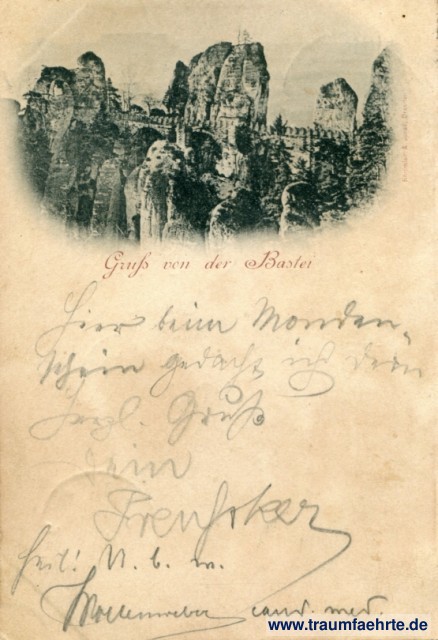 Gruß von der Bastei
Hier beim Monden-
schein gedacht ich dein
Herzl. Gruß
Dein
Heil! N. b. w.
Wollenweber cand. med.
www.traumfaehrte.de